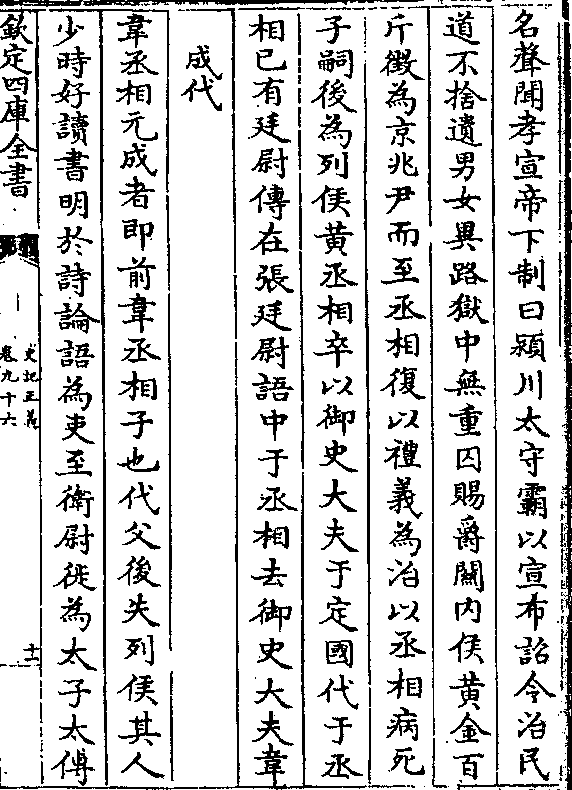 名聲聞孝宣帝下制曰潁川太守霸以宣布詔令治民
道不捨遺男女異路獄中無重囚賜爵關内侯黄金百
斤徵為京兆尹而至丞相復以禮義為治以丞相病死
子嗣後為列侯黄丞相卒以御史大夫于定國代于丞
相已有廷尉傳在張廷尉語中于丞相去御史大夫韋
成代
韋丞相元成者即前韋丞相子也代父後失列侯其人
少時好讀書明於詩論語為吏至衛尉徙為太子太傅
欽定四庫全書
史記正義
卷九十六
十二